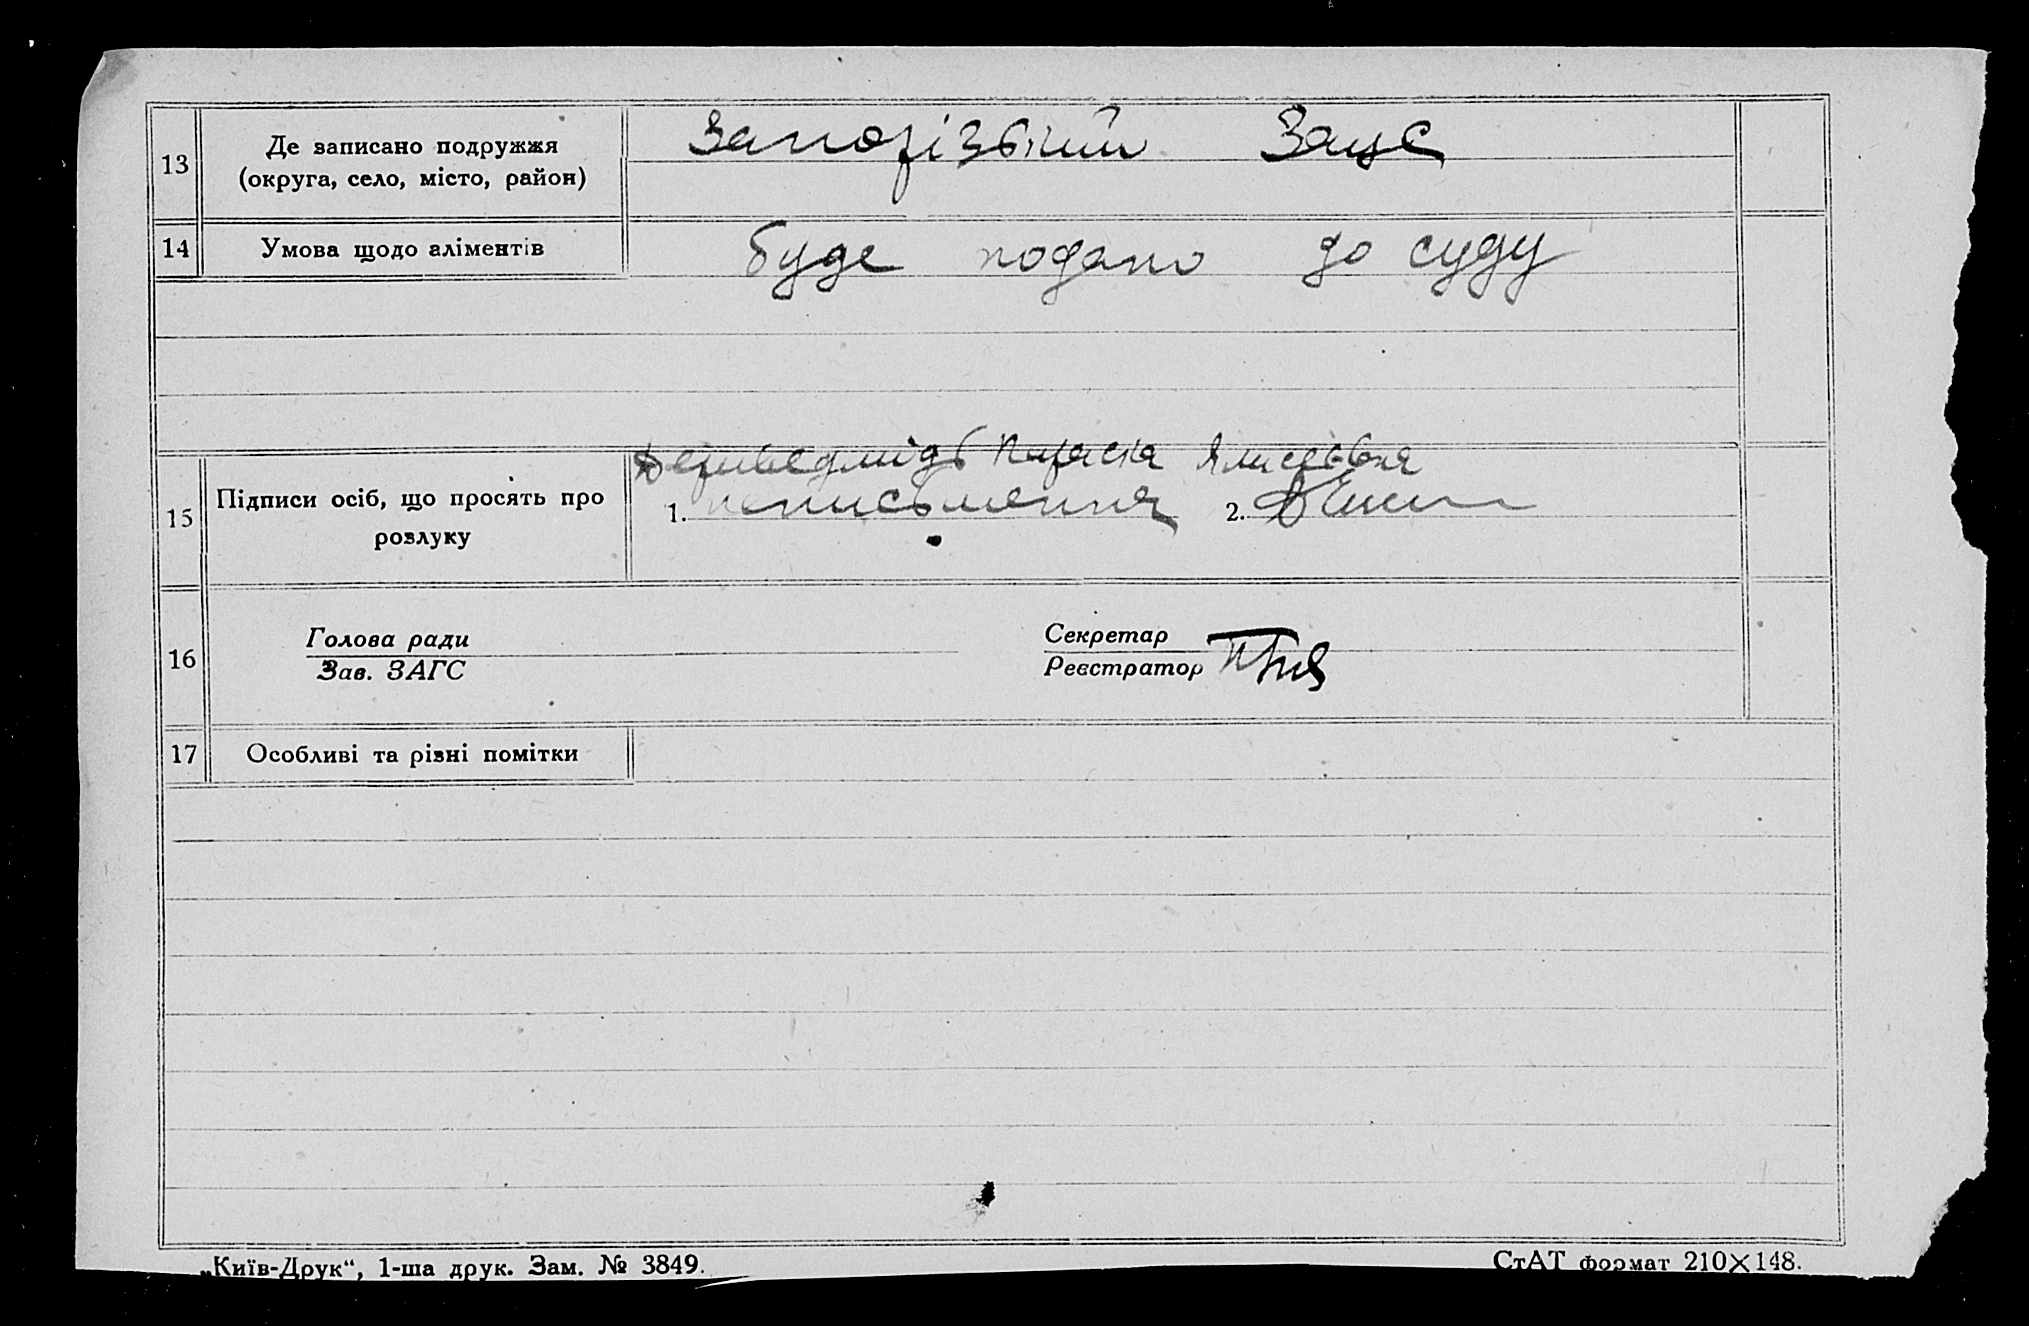 13 Де записано подружжя Запорізький Заце
(округа, село, місто, район)
14 Умова щодо аліментів буде подано до суду
Параска
15 Підписи осіб, що просять про 1. неписьменна 2.
розлуку
16 Голова ради Секретар
Зав. ЗАГС Реєстратор
17 Особливі та різні помітки
„Київ-Друк“, 1-ша друк. Зам. № 3849. СтАТ формат 210×148.